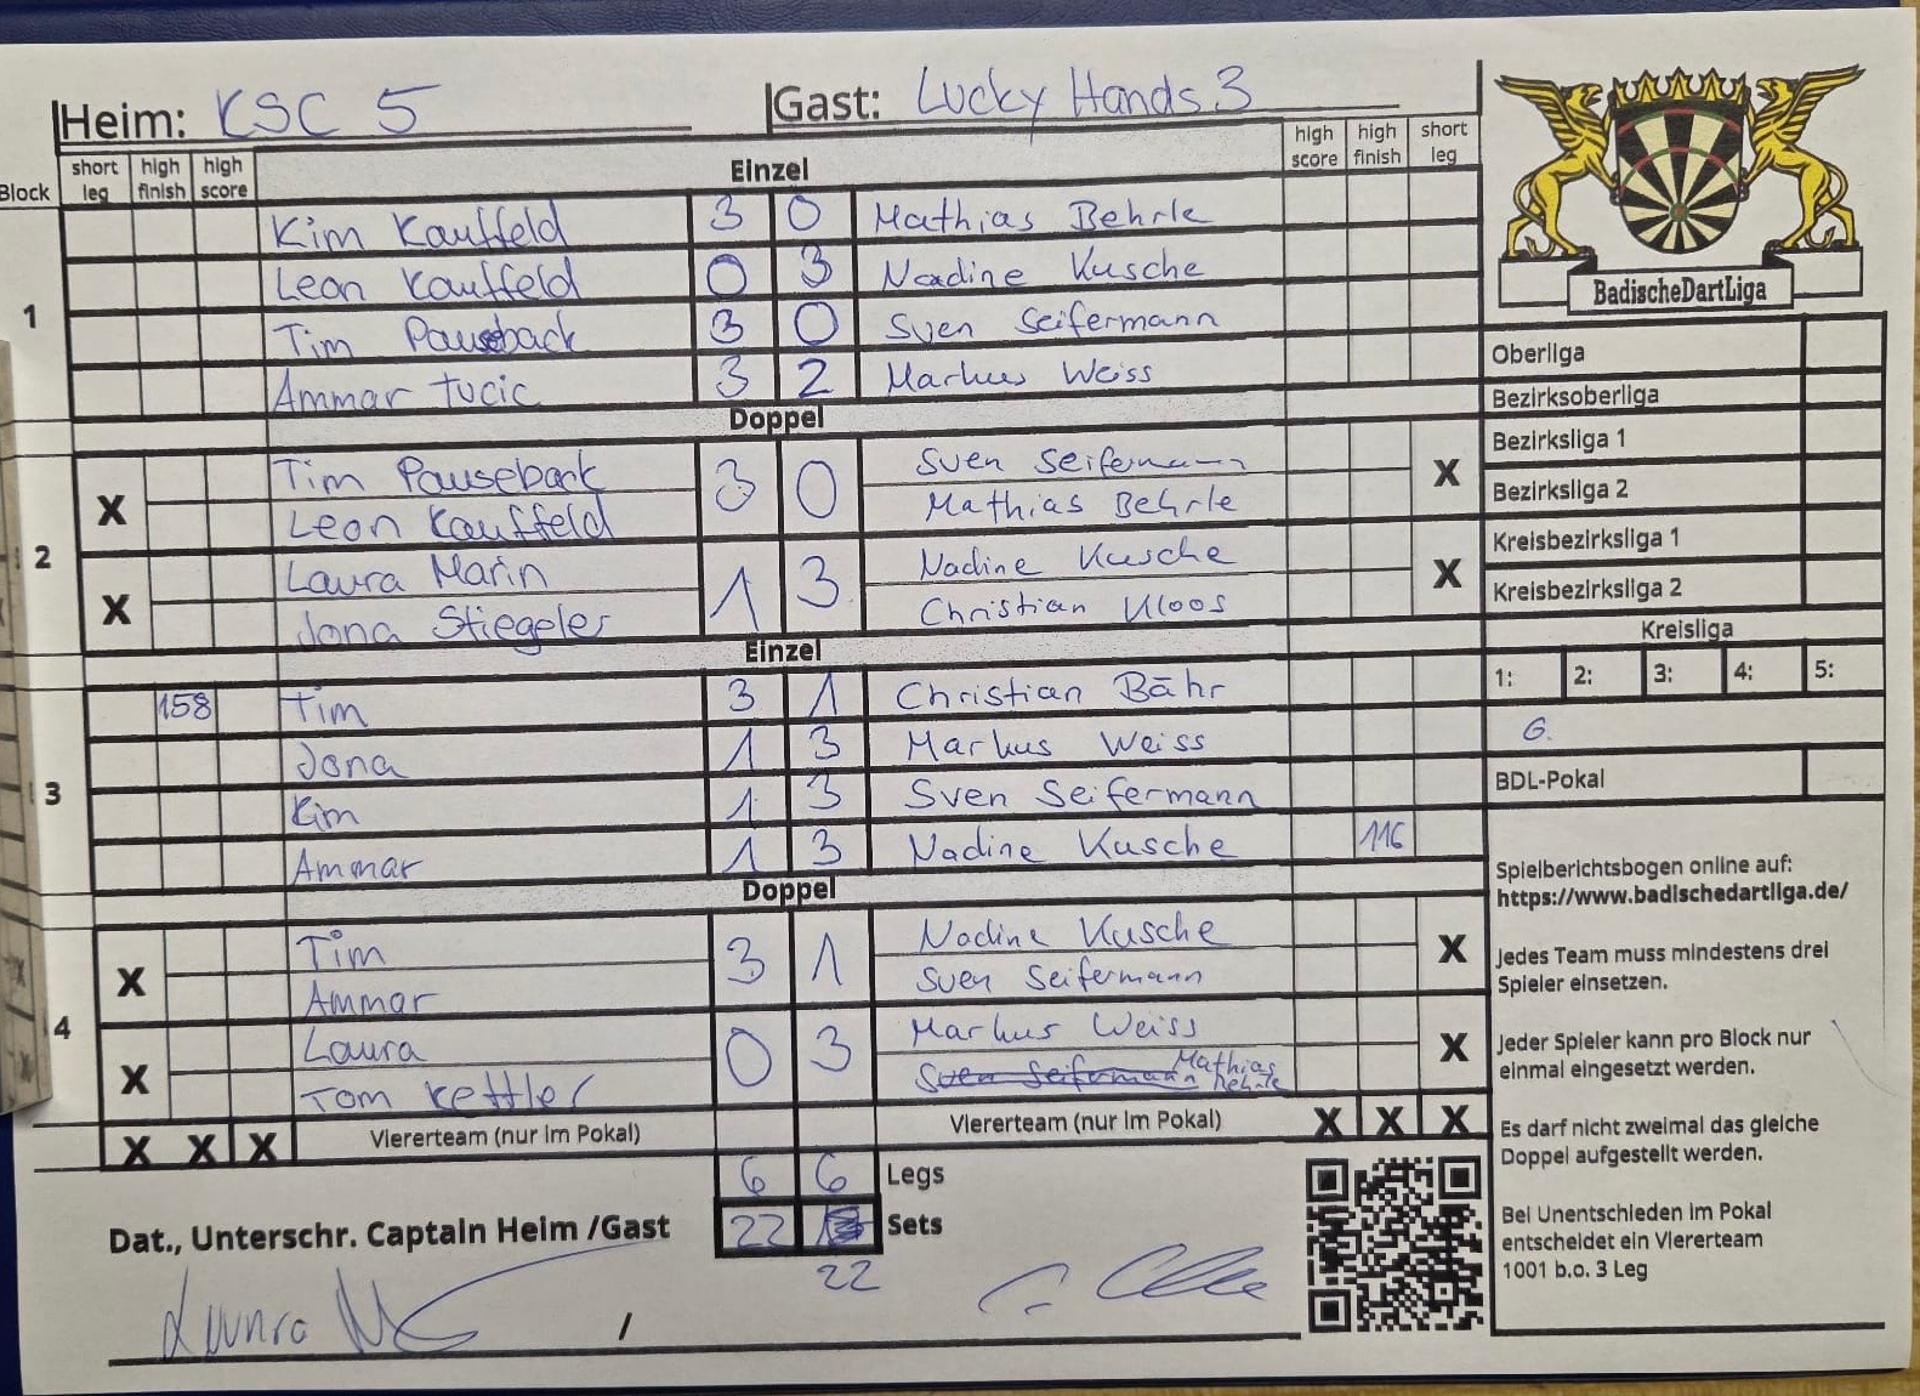 Heim: KSC 5 Gast: Lucky Hands 3
Block short leg high finish high score Einzel high score high finish short leg
Kim Kauffeld 3 0 Mathias Behrle
Leon Kauffeld 0 3 Nadine Kusche
1
Tim Pauseback 3 0 Sven Seifermann
Ammar Tucic 3 2 Markus Weiss
Doppel
X Tim Pauseback 3 0 Sven Seifermann X
Leon Kauffeld Mathias Behrle
2
X Laura Marin 1 3 Nadine Kusche X
Jona Stiegeler Christian Kloos
Einzel
158 Tim 3 1 Christian Bähr
Jona 1 3 Markus Weiss
3
Kim 1 3 Sven Seifermann
Ammar 1 3 Nadine Kusche 116
Doppel
X Tim 3 1 Nadine Kusche X
Ammar Sven Seifermann
4
X Laura 0 3 Markus Weiss X
Tom Kettler Sven Seifermann Mathias Behrle
X X X Viererteam (nur im Pokal) Viererteam (nur im Pokal) X X X
6 6 Legs
Dat., Unterschr. Captain Heim /Gast 22 Sets
22
/
BadischeDartLiga
Oberliga
Bezirksoberliga
Bezirksliga 1
Bezirksliga 2
Kreisbezirksliga 1
Kreisbezirksliga 2
Kreisliga
1: 2: 3: 4: 5:
6.
BDL-Pokal
Spielberichtsbogen online auf:
https://www.badischedartliga.de/
Jedes Team muss mindestens drei
Spieler einsetzen.
Jeder Spieler kann pro Block nur
einmal eingesetzt werden.
Es darf nicht zweimal das gleiche
Doppel aufgestellt werden.
Bei Unentschieden im Pokal
entscheidet ein Viererteam
1001 b.o. 3 Leg